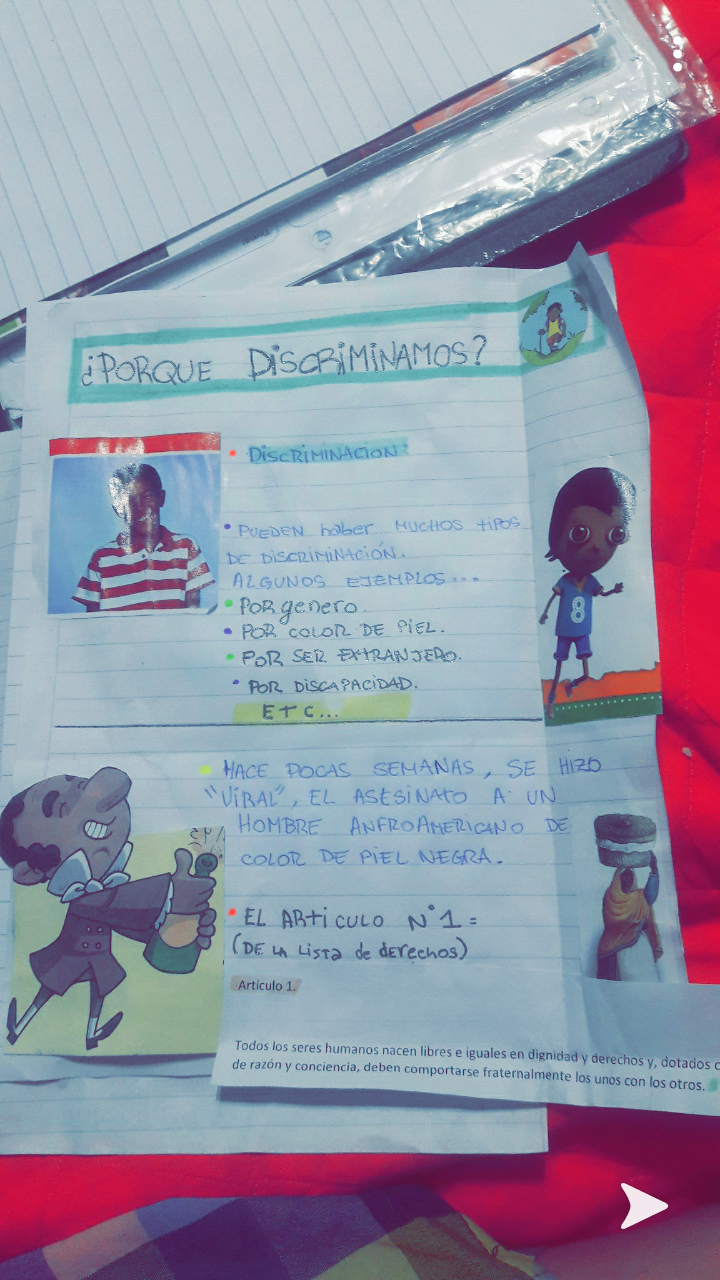 ¿PORQUE DISCRIMINAMOS?
• DISCRIMINACION:
• PUEDEN haber MUCHOS tIPOS
DE DISCRIMINACIÓN.
ALGUNOS EJEMPLOS...
• POR genero.
• POR COLOR DE PIEL.
• POR SER EXTRANJERO.
• POR DISCAPACIDAD.
ETC...
• HACE POCAS SEMANAS, SE HIZO
"VIRAL", EL ASESINATO A UN
HOMBRE ANFROAMERICANO DE
COLOR DE PIEL NEGRA.
• EL ARtICULO N°1=
(DE LA LISTa de derechos)
Artículo 1.
Todos los seres humanos nacen libres e iguales en dignidad y derechos y, dotados
de razón y conciencia, deben comportarse fraternalmente los unos con los otros.
8